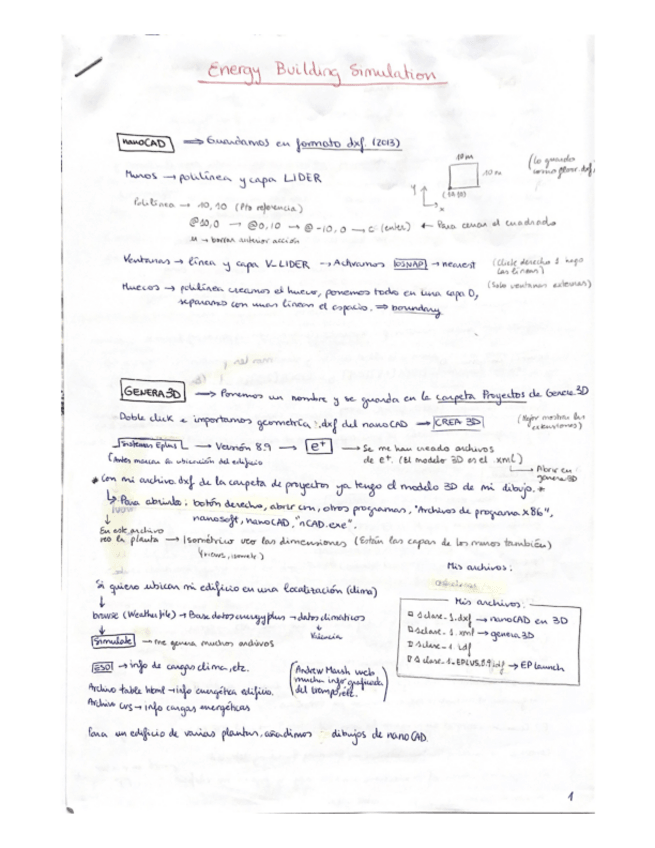 Energy Building Simulation
nanoCAD ⟹ Guardamos en formato dxf. (2013)
10 m
10 m
(10,10)
Y
x
(Lo guardo
como plano.dxf
Muros → polilínea y capa LIDER
Polilínea → 10,10 (Pto referencia)
@10,0 → @0,10 → @-10,0 → c (enter) ← Para cerrar el cuadrado
u → borrar anterior acción
Ventanas → línea y capa V-LIDER → Activamos OSNAP → nearest
(Click derecho & hago
las líneas)
(Solo ventanas externas)
Huecos → polilínea creamos el hueco, ponemos todo en una capa 0,
separamos con unas líneas el espacio. ⟹ boundary
GENERA3D → Ponemos un nombre y se guarda en la carpeta Proyectos de Genera3D
Doble click e importamos geometría: .dxf del nanoCAD → CREA 3D
extensiones)
Sistemas Eplus → Versión 8.9 → e+ → Se me han creado archivos
de e+. (El modelo 3D es el .xml)
(Antes marcar la ubicación del edificio
Abrir en:
genera3D
* Con mi archivo dxf de la carpeta de proyectos ya tengo el modelo 3D de mi dibujo. *
↳ Para abrirlo: botón derecho, abrir con, otros programas, "Archivos de programa x86",
nanosoft, nanoCAD, "nCAD.exe".
En este archivo
veo la planta → Isométrico veo las dimensiones (Están las capas de los muros también)
(views, isometric)
Mis archivos:
Si quiero ubicar mi edificio en una localización (clima)
↓
browse (Weather file) → Base datos energyplus → datos climáticos
↓
Valencia
Simulate → me genera muchos archivos
Mis archivos:
clase_1.dxf → nanoCAD en 3D
clase_1.xml → genera3D
clase_1.idf
clase_1_EPLUS8.9.idf → EP Launch
ESO → info de cargas clima, etc.
(Andrew Marsh web
mucha info graficada
del tiempo, etc.)
Archivo table html → info energética edificio.
Archivo cvs → info cargas energéticas
Para un edificio de varias plantas, añadimos dibujos de nanoCAD.
1